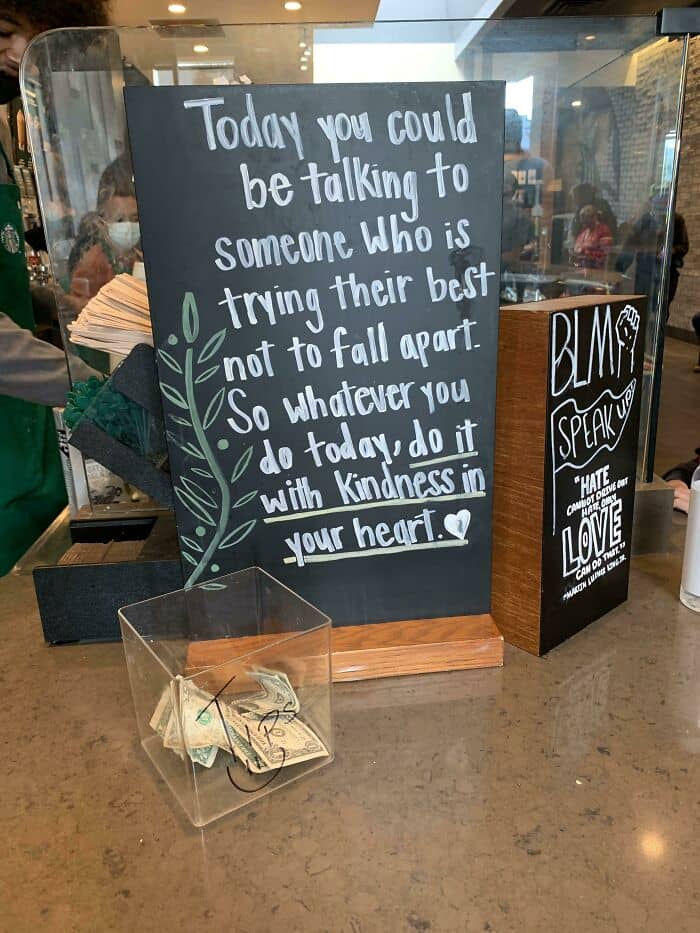 Today you could
be talking to
someone who is
trying their best
not to fall apart.
So whatever you
do today, do it
with kindness in
your heart.
BLM
SPEAK UP
"HATE
CANNOT DRIVE OUT
HATE, ONLY
LOVE
CAN DO THAT."
-MARTIN LUTHER KING JR.
TIPS